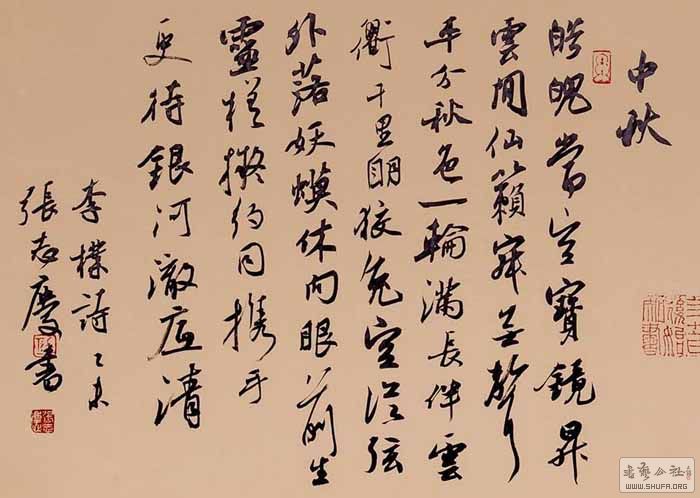 中秋
皓魄當空寶鏡昇
雲間仙籟寂無聲
平分秋色一輪滿長伴雲
衢千里眀狡兔空從弦
外落妖蟆休向眼前生
靈槎擬約同携手
更待銀河澈底清
李樸詩乙未
張志慶書
書藝公社
WWW.SHUFA.ORG